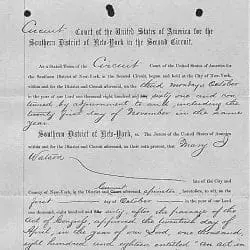 Circuit Court of the United States of America for the
Southern District of New-York in the Second Circuit.
At a Stated Term of the Circuit Court of the United States of America for the
Southern District of New-York, in the Second Circuit, begun and held at the City of New-York,
within and for the District and Circuit aforesaid, on the third Monday of October
in the year of our Lord one thousand eight hundred and sixty one and con
tinued by adjournment to and including the
twenty first day of November in the same
year.
Southern District of New-York, ss. The Jurors of the United States of America
within and for the District and Circuit aforesaid, on their oath present, that Mary J
Watson
late of the City and
County of New-York, in the District and Circuit aforesaid, spinster heretofore, to wit, on the
first day of October in the year of our Lord
one thousand, eight hundred and sixty, after the passage of the
Act of Congress approved the twentieth day of
April, in the year of our Lord, one thousand,
eight hundred and eighteen entitled "An action